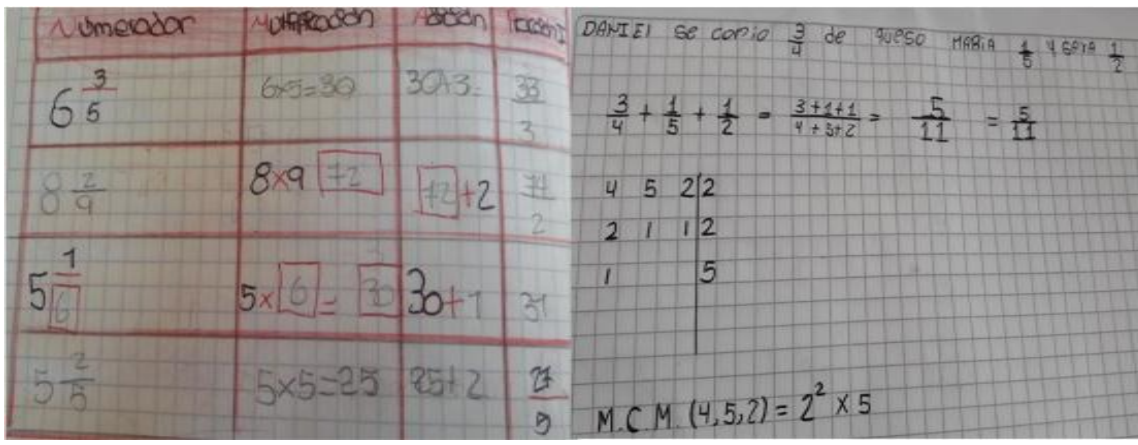 Numerador Multiplicación Adición
6 3/5 6x5=30 30+3= 33/3
8 2/9 8x9 72 72+2 74/2
5 1/6 5x6=30 30+1 31
5 2/5 5x5=25 25+2 27/5
DANIEl se comio 3/4 de queso MARIA 1/5 y SARA 1/2
3/4 + 1/5 + 1/2 = 3+1+1/4+3+2 = 5/11 = 5/11
4 5 2|2
2 1 1|2
1 5
M.C.M. (4,5,2) = 2² x 5